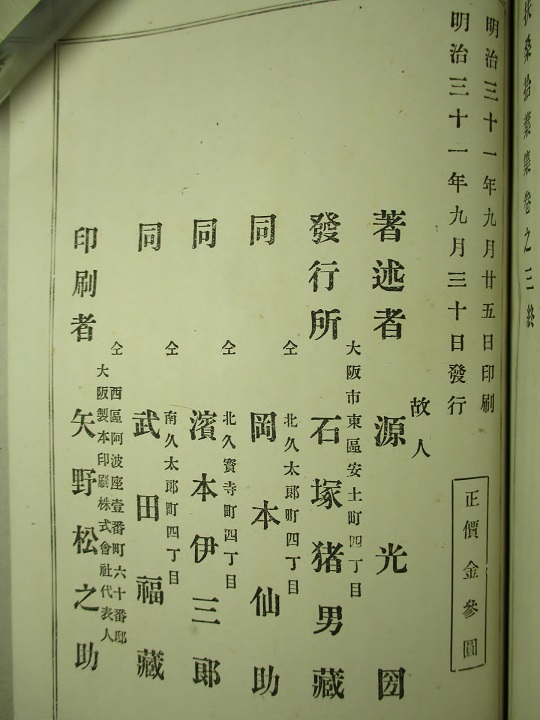 扶桑拾葉集卷之三終
明治三十一年九月廿五日印刷
明治三十一年九月三十日發行
正價金參圓
著述者 故人 源光圀
發行所 大阪市東區安土町四丁目 石塚猪男藏
同 仝 北久太郎町四丁目 岡本仙助
同 仝 北久寶寺町四丁目 濱本伊三郎
同 仝 南久太郎町四丁目 武田福藏
印刷者 仝 西區阿波座壹番町六十番邸
大阪製本印刷株式會社代表人
矢野松之助